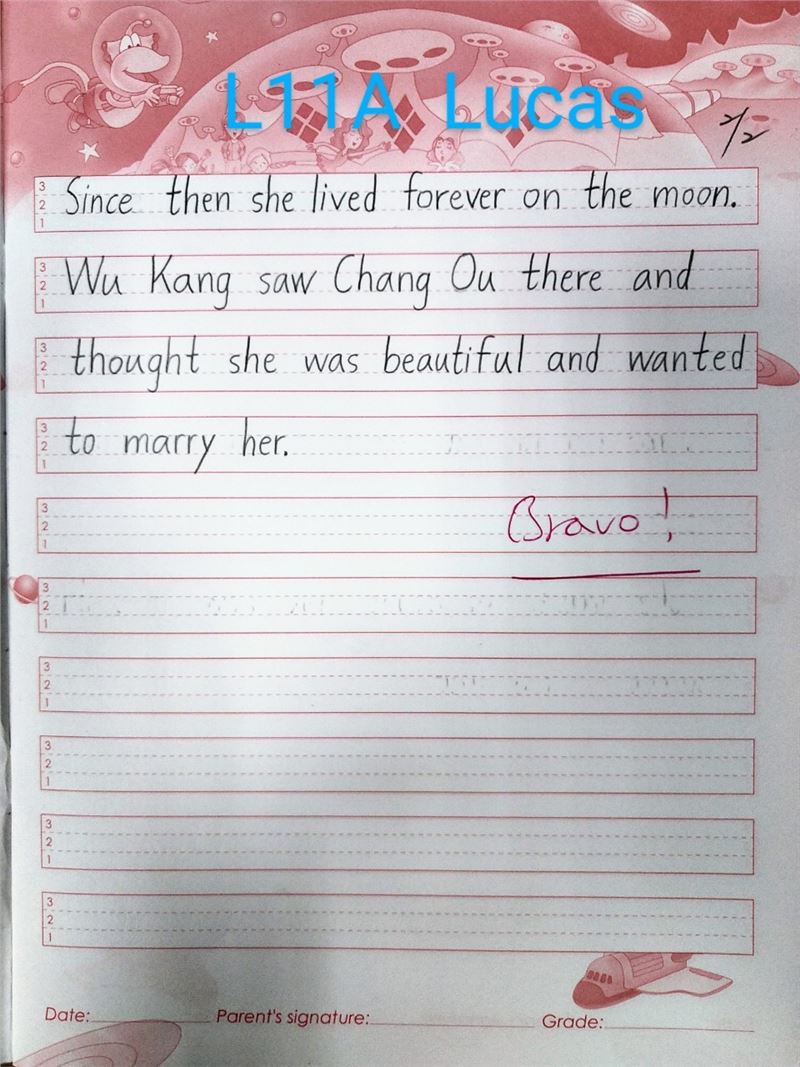 L11A Lucas
2/2
3 Since then she lived forever on the moon.
2
1
3 Wu Kang saw Chang Ou there and
2
1
3 thought she was beautiful and wanted
2
1
3 to marry her.
2
1
3
2 Bravo!
1
3
2
1
3
2
1
3
2
1
3
2
1
3
2
1
Date: Parent's signature: Grade: